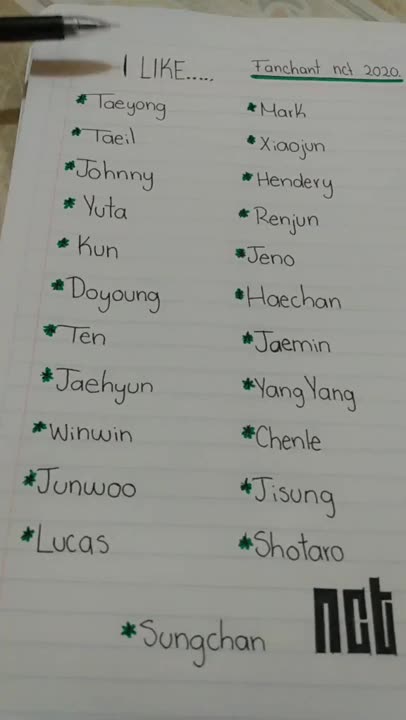 I LIKE.....
Fanchant nct 2020.
*Taeyong
*Taeil
*Johnny
*Yuta
*Kun
*Doyoung
*Ten
*Jaehyun
*Winwin
*Junwoo
*Lucas
*Mark
*Xiaojun
*Hendery
*Renjun
*Jeno
*Haechan
*Jaemin
*YangYang
*Chenle
*Jisung
*Shotaro
*Sungchan
nct